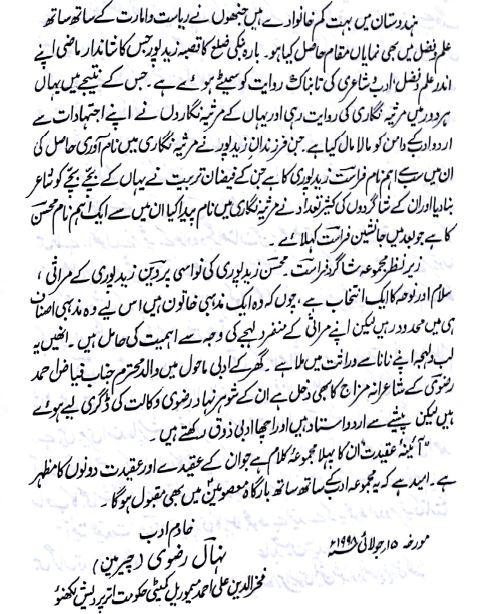 ہندوستان میں بہت کم خانوادے ہیں جنھوں نے ریاست و امارت کے ساتھ ساتھ
علم و فضل میں بھی نمایاں مقام حاصل کیا ہو۔ بارہ بنکی ضلع کا قصبہ زید پور جس کا شاندار ماضی اپنے
اندر علم و فضل، ادب و شاعری کی تابناک روایت کو سمیٹے ہوئے ہے۔ جس کے نتیجے میں یہاں
ہر دور میں مرثیہ نگاری کی روایت رہی اور یہاں کے مرثیہ نگاروں نے اپنے اجتہادات سے
اردو ادب کے دامن کو مالا مال کیا ہے جن فرزندانِ زید پور نے مرثیہ نگاری میں نام آوری حاصل کی
ان میں سب سے اہم نام فراست زید پوری کا ہے جن کے فیضانِ تربیت نے یہاں کے بچے بچے کو شاعر
بنا دیا اور ان کے شاگردوں کی کثیر تعداد نے مرثیہ نگاری میں نام پیدا کیا ان میں سے ایک اہم نام محسن
کا ہے جو بعد میں جانشین فراست کہلائے۔
زیر نظر مجموعہ شاگرد فراست۔ محسن زید پوری کی نواسی پروین زید پوری کے مراثی،
سلام اور نوحہ کا ایک انتخاب ہے، چوں کہ وہ ایک مذہبی خاتون ہیں اس لیے وہ مذہبی اصناف
ہی میں محدود رہیں لیکن اپنے مراثی کے منفرد لہجے کی وجہ سے اہمیت کی حامل ہیں۔ انھیں یہ
لب و لہجہ اپنے نانا سے وراثت میں ملا ہے۔ گھر کے ادبی ماحول میں والد محترم جناب فیاض احمد
رضوی کے شاعرانہ مزاج کا بھی دخل ہے ان کے شوہر نہاد رضوی وکالت کی ڈگری لیے ہوئے
ہیں لیکن پیشے سے اردو استاد ہیں اور اچھا ادبی ذوق رکھتے ہیں۔
"آئینۂ عقیدت" ان کا پہلا مجموعۂ کلام ہے جو ان کے عقیدے اور عقیدت دونوں کا مظہر
ہے۔ امید ہے کہ یہ مجموعہ ادب کے ساتھ ساتھ بارگاہ معصومینؑ میں بھی مقبول ہوگا۔
خادم ادب
مورخہ ۱۵ جولائی ۱۹۹۸ء
نہال رضوی (چیرمین)
فخرالدین علی احمد میموریل کمیٹی حکومت اتر پردیش لکھنؤ